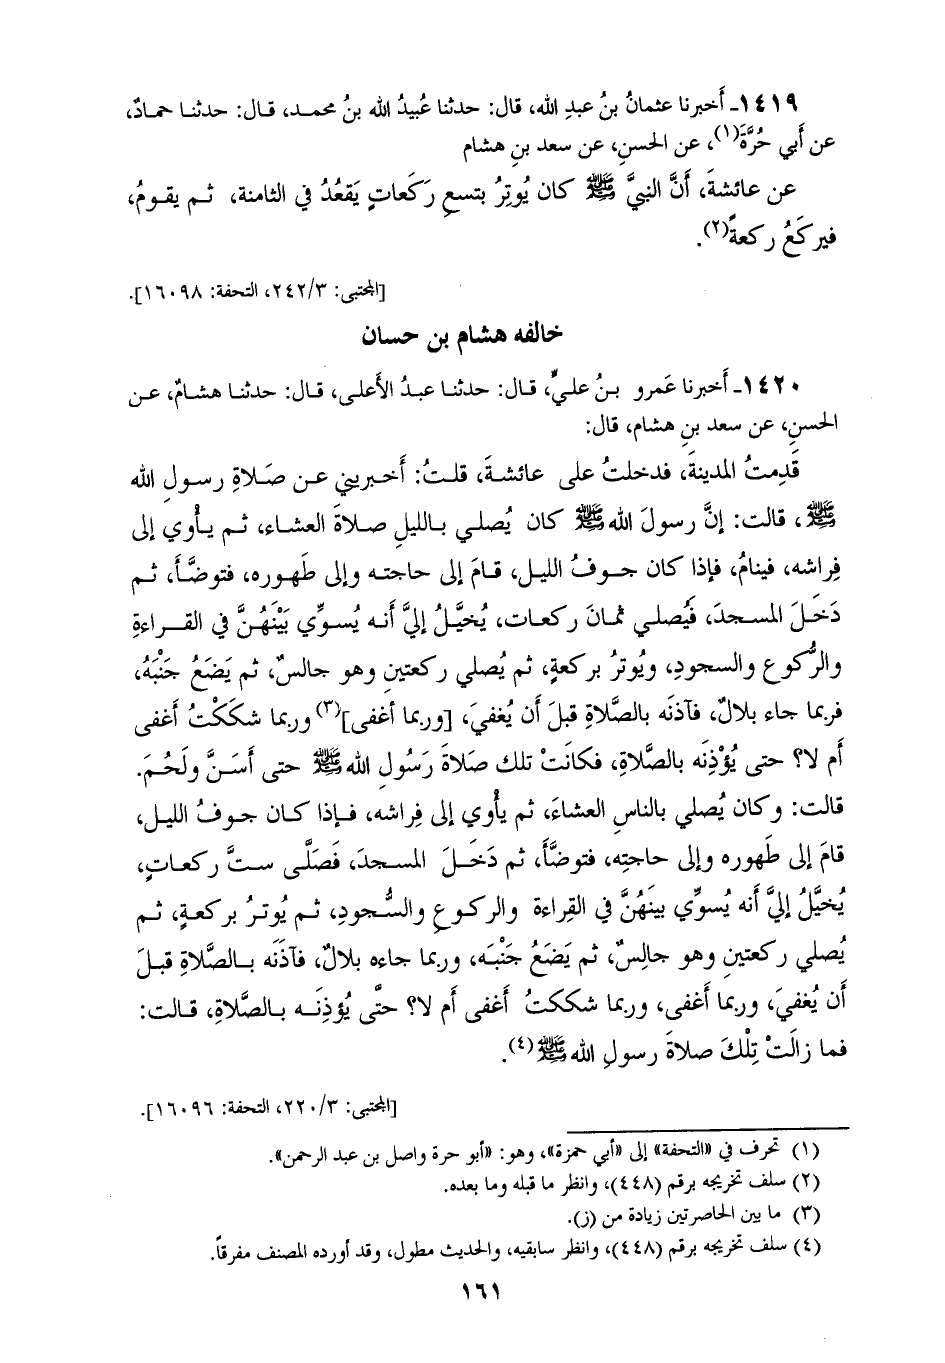 ١٤١٩ـ أَخبرنا عثمانُ بنُ عبدِ الله، قال: حدثنا عُبيدُ الله بنُ محمد، قال: حدثنا حمادٌ،
عن أَبي حُرَّةَ(١)، عن الحسنِ، عن سعد بنِ هشام
عن عائشةَ، أَنَّ النبيَّ ﷺ كان يُوتِرُ بتسعِ رَكَعاتٍ يَقعُدُ في الثامنة، ثم يقومُ،
فيركَعُ ركعةً(٢).
[المجتبى: ٢٤٢/٣، التحفة: ١٦٠٩٨].
خالفه هشام بن حسان
١٤٢٠ـ أَخبرنا عَمرو بنُ عليٍّ، قال: حدثنا عبدُ الأَعلى، قال: حدثنا هشامٌ، عن
الحسنِ، عن سعد بنِ هشام، قال:
قَدِمتُ المدينةَ، فدخلتُ على عائشةَ، قلتُ: أَخبريني عن صَلاةِ رسولِ الله
ﷺ، قالت: إنَّ رسولَ الله ﷺ كان يُصلي بالليلِ صلاةَ العشاء، ثم يأْوي إلى
فِراشه، فينامُ، فإذا كان جوفُ الليل، قامَ إلى حاجته وإلى طَهوره، فتوضَّأَ، ثم
دَخَلَ المسجدَ، فيُصلي ثمانَ ركعات، يُخيَّلُ إليَّ أَنه يُسوِّي بَيْنَهُنَّ في القراءةِ
والرُّكوع والسجودِ، ويُوترُ بركعةٍ، ثم يُصلي ركعتينِ وهو جالسٌ، ثم يَضَعُ جَنْبَهُ،
فربما جاء بلالٌ، فآذنَه بالصَّلاةِ قبلَ أَن يُغفيَ، [وربما أغفى](٣) وربما شكَكْتُ أَغفى
أَم لا؟ حتى يُؤْذِنَه بالصَّلاةِ، فكانَتْ تلك صلاةَ رَسُولِ الله ﷺ حتى أَسَنَّ ولَحُمَ.
قالت: وكان يُصلي بالناسِ العشاءَ، ثم يأْوي إلى فِراشه، فإذا كان جوفُ الليل،
قامَ إلى طَهوره وإلى حاجتِه، فتوضَّأَ، ثم دَخَلَ المسجدَ، فَصَلَّى ستَّ ركعاتٍ،
يُخيَّلُ إليَّ أَنه يُسوِّي بينَهُنَّ في القِراءة والركوعِ والسُّجودِ، ثم يُوترُ بركعةٍ، ثم
يُصلي ركعتينِ وهو جالِسٌ، ثم يَضَعُ جَنْبَه، وربما جاءه بلالٌ، فآذَنَه بالصَّلاةِ قبلَ
أَن يُغفيَ، وربما أَغفى، وربما شككتُ أَغفى أَم لا؟ حتَّى يُؤذِنَه بالصَّلاةِ، قالت:
فما زالَتْ تِلْكَ صلاةَ رسولِ الله ﷺ(٤).
[المجتبى: ٢٢٠/٣، التحفة: ١٦٠٩٦].
(١) تحرف في «التحفة» إلى «أبي حمزة»، وهو: «أبو حرة واصل بن عبد الرحمن».
(٢) سلف تخريجه برقم (٤٤٨)، وانظر ما قبله وما بعده.
(٣) ما بين الحاصرتين زيادة من (ز).
(٤) سلف تخريجه برقم (٤٤٨)، وانظر سابقيه، والحديث مطول، وقد أورده المصنف مفرقاً.
١٦١